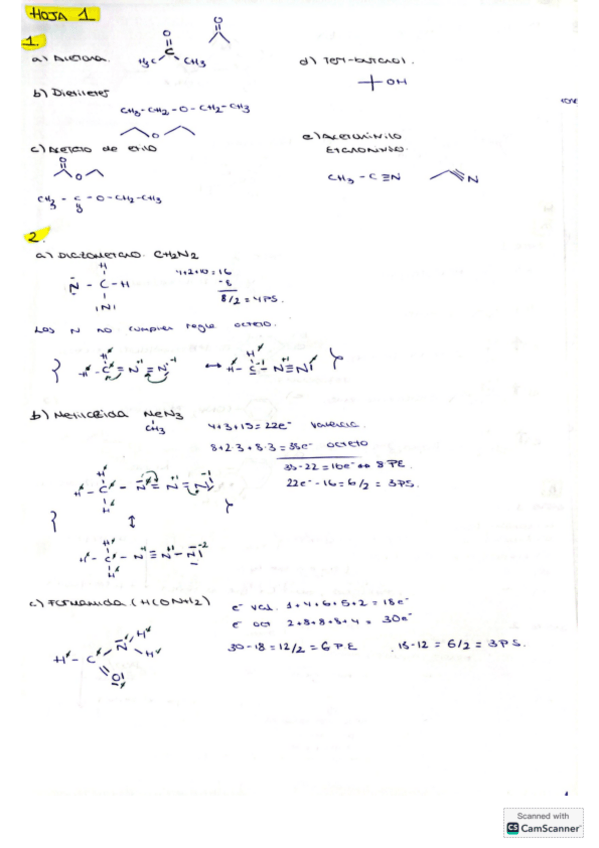 HOJA 1
1.
a) Acetona.
O
H3C C CH3
O
d) Terc-butanol.
OH
b) Dietileter
CH3-CH2-O-CH2-CH3
O
c) Acetato de etilo
O
O
CH3 - C - O - CH2 - CH3
e) Acetonitrilo
CH3 - C ≡ N
N
2.
a) Diazometano CH2N2
4+2+10=16
-8
8/2 = 4PS.
H
N - C - H
|N|
Los N no cumplen regla octeto.
H - C = N = N ↔ H - C - N ≡ N
b) Metilazida MeN3
CH3
4+3+15=22e- valencia
8+2·3+8·3=38e- octeto
38-22=16e- 8 PE.
22e- - 16 = 6/2 = 3PS.
H - C - N = N = N
↕
H - C - N ≡ N - N
c) Formamida (HCONH2)
e- val. 1+4+6+5+2 = 18e-
e- oct 2+8+8+8+4 = 30e-
30-18=12/2=6PE
18-12=6/2=3PS.
H - C
N H
H
O
Scanned with
CS CamScanner